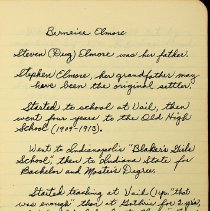 Berneice Elmore
Steven (Doug) Elmore was her father.
Stephen Elmore, her grandfather may
have been the original settler.
Started to school at Vail, then
went four years to the Old High
School (1909-1913).
Went to Indianapolis "Blaker's Girls
School", then to Indiana State for
Bachelor and Masters Degree.
Started teaching at Vail (1 yr. "that
was enough" then at Guthrie for 2 yrs,